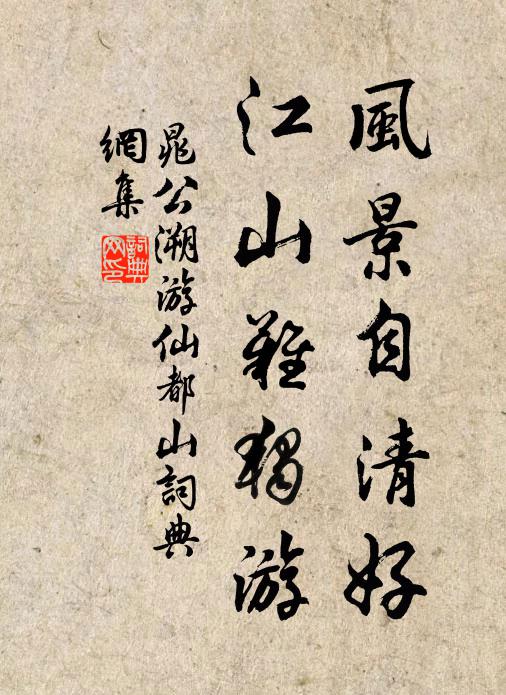 風景自清好
江山難獨游
晁公溯游仙都山詞典
網集
詞典
网印